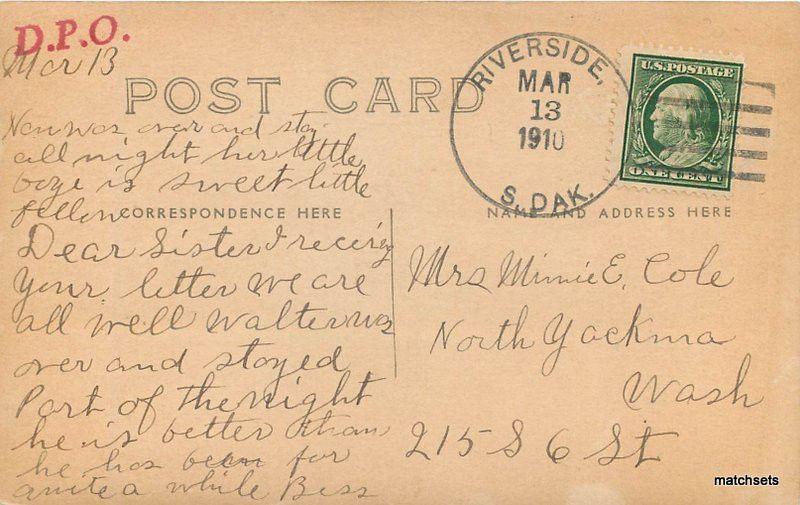 D.P.O.
Mar 13
POST CARD
RIVERSIDE,
MAR
13
1910
S. DAK.
U.S. POSTAGE
ONE CENT
was over and stay
all night her little
boye is sweet little
fellow
CORRESPONDENCE HERE
NAME AND ADDRESS HERE
Dear Sister I
Your letter we are
all well Walter was
over and stayed
Part of the night
he is better than
he has been for
quite a while Bess
Mrs Minnie E. Cole
North Yackima
Wash
215 S 6 St
matchsets